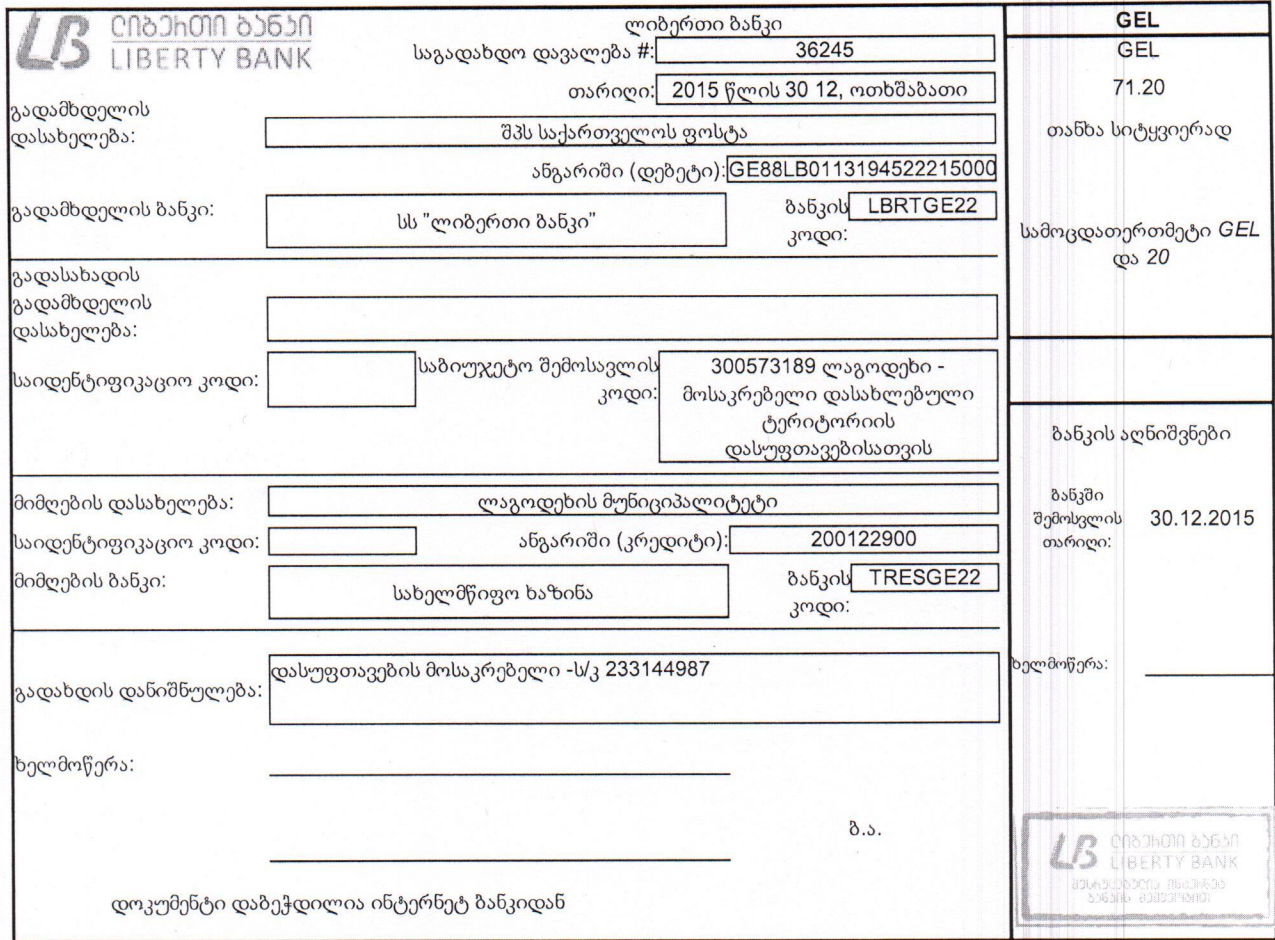 ლიბერთი ბანკი
LIBERTY BANK
ლიბერთი ბანკი
საგადახდო დავალება #: 36245
თარიღი: 2015 წლის 30 12, ოთხშაბათი
გადამხდელის
დასახელება: შპს საქართველოს ფოსტა
ანგარიში (დებეტი): GE88LB0113194522215000
გადამხდელის ბანკი: სს "ლიბერთი ბანკი" ბანკის LBRTGE22
კოდი:
გადასახადის
გადამხდელის
დასახელება:
საიდენტიფიკაციო კოდი: საბიუჯეტო შემოსავლის 300573189 ლაგოდეხი -
კოდი: მოსაკრებელი დასახლებული
ტერიტორიის
დასუფთავებისათვის
მიმღების დასახელება: ლაგოდეხის მუნიციპალიტეტი
საიდენტიფიკაციო კოდი: ანგარიში (კრედიტი): 200122900
მიმღების ბანკი: სახელმწიფო ხაზინა ბანკის TRESGE22
კოდი:
გადახდის დანიშნულება: დასუფთავების მოსაკრებელი -ს/კ 233144987
ხელმოწერა:
ბ.ა.
დოკუმენტი დაბეჭდილია ინტერნეტ ბანკიდან
GEL
GEL
71.20
თანხა სიტყვიერად
სამოცდათერთმეტი GEL
და 20
ბანკის აღნიშვნები
ბანკში
შემოსვლის 30.12.2015
თარიღი:
ხელმოწერა:
LB ლიბერთი ბანკი
LIBERTY BANK
შესრულებულია ინტერნეტ
ბანკის მეშვეობით